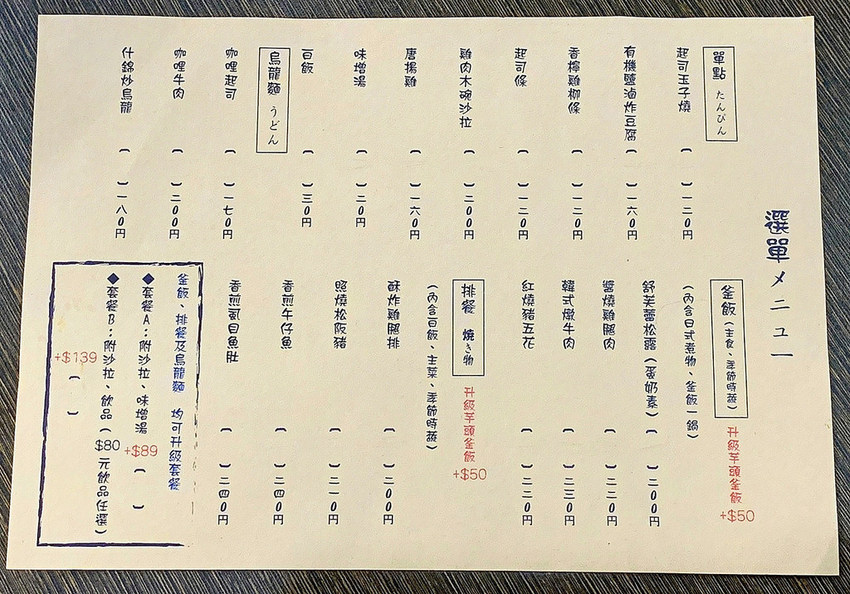 選單メニュー
單點 たんぴん
起司玉子燒 ( ) 一二０円
有機鹽滷炸豆腐 ( ) 一六０円
香檸雞柳條 ( ) 一二０円
起司條 ( ) 一二０円
雞肉木碗沙拉 ( ) 二００円
唐揚雞 ( ) 一六０円
味增湯 ( ) 二０円
白飯 ( ) 三０円
烏龍麵 うどん
咖哩起司 ( ) 一七０円
咖哩牛肉 ( ) 二００円
什錦炒烏龍 ( ) 一八０円
釜飯(主食、季節時蔬) 升級芋頭釜飯+$50
(內含日式煮物、釜飯一鍋)
舒芙蕾松露(蛋奶素) ( ) 二００円
醬燒雞腿肉 ( ) 二二０円
韓式燉牛肉 ( ) 二三０円
紅燒豬五花 ( ) 二二０円
排餐 燒き物 升級芋頭釜飯+$50
(內含白飯、主菜、季節時蔬)
酥炸雞腿排 ( ) 二００円
照燒松阪豬 ( ) 二一０円
香煎午仔魚 ( ) 二四０円
香煎虱目魚肚 ( ) 二四０円
釜飯、排餐及烏龍麵 均可升級套餐
◆套餐A：附沙拉、味增湯+$89 ( )
◆套餐B：附沙拉、飲品($80元飲品任選)
+$139 ( )